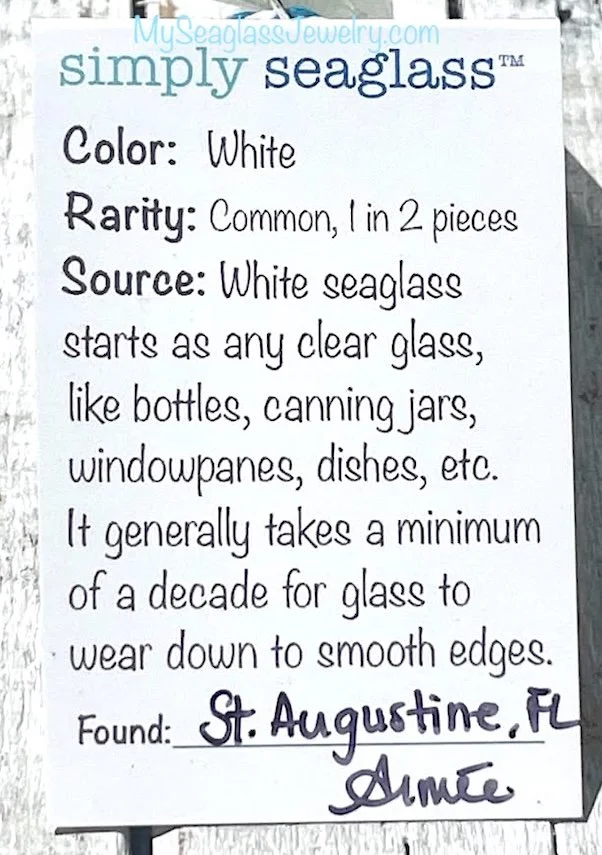 MySeaglassJewelry.com
simply seaglass™
Color: White
Rarity: Common, 1 in 2 pieces
Source: White seaglass
starts as any clear glass,
like bottles, canning jars,
windowpanes, dishes, etc.
It generally takes a minimum
of a decade for glass to
wear down to smooth edges.
Found: St. Augustine, FL
Aimée